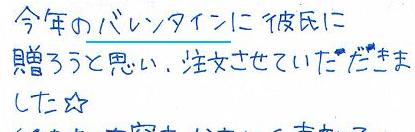 今年のバレンタインに彼氏に
贈ろうと思い、注文させていただきま
した☆